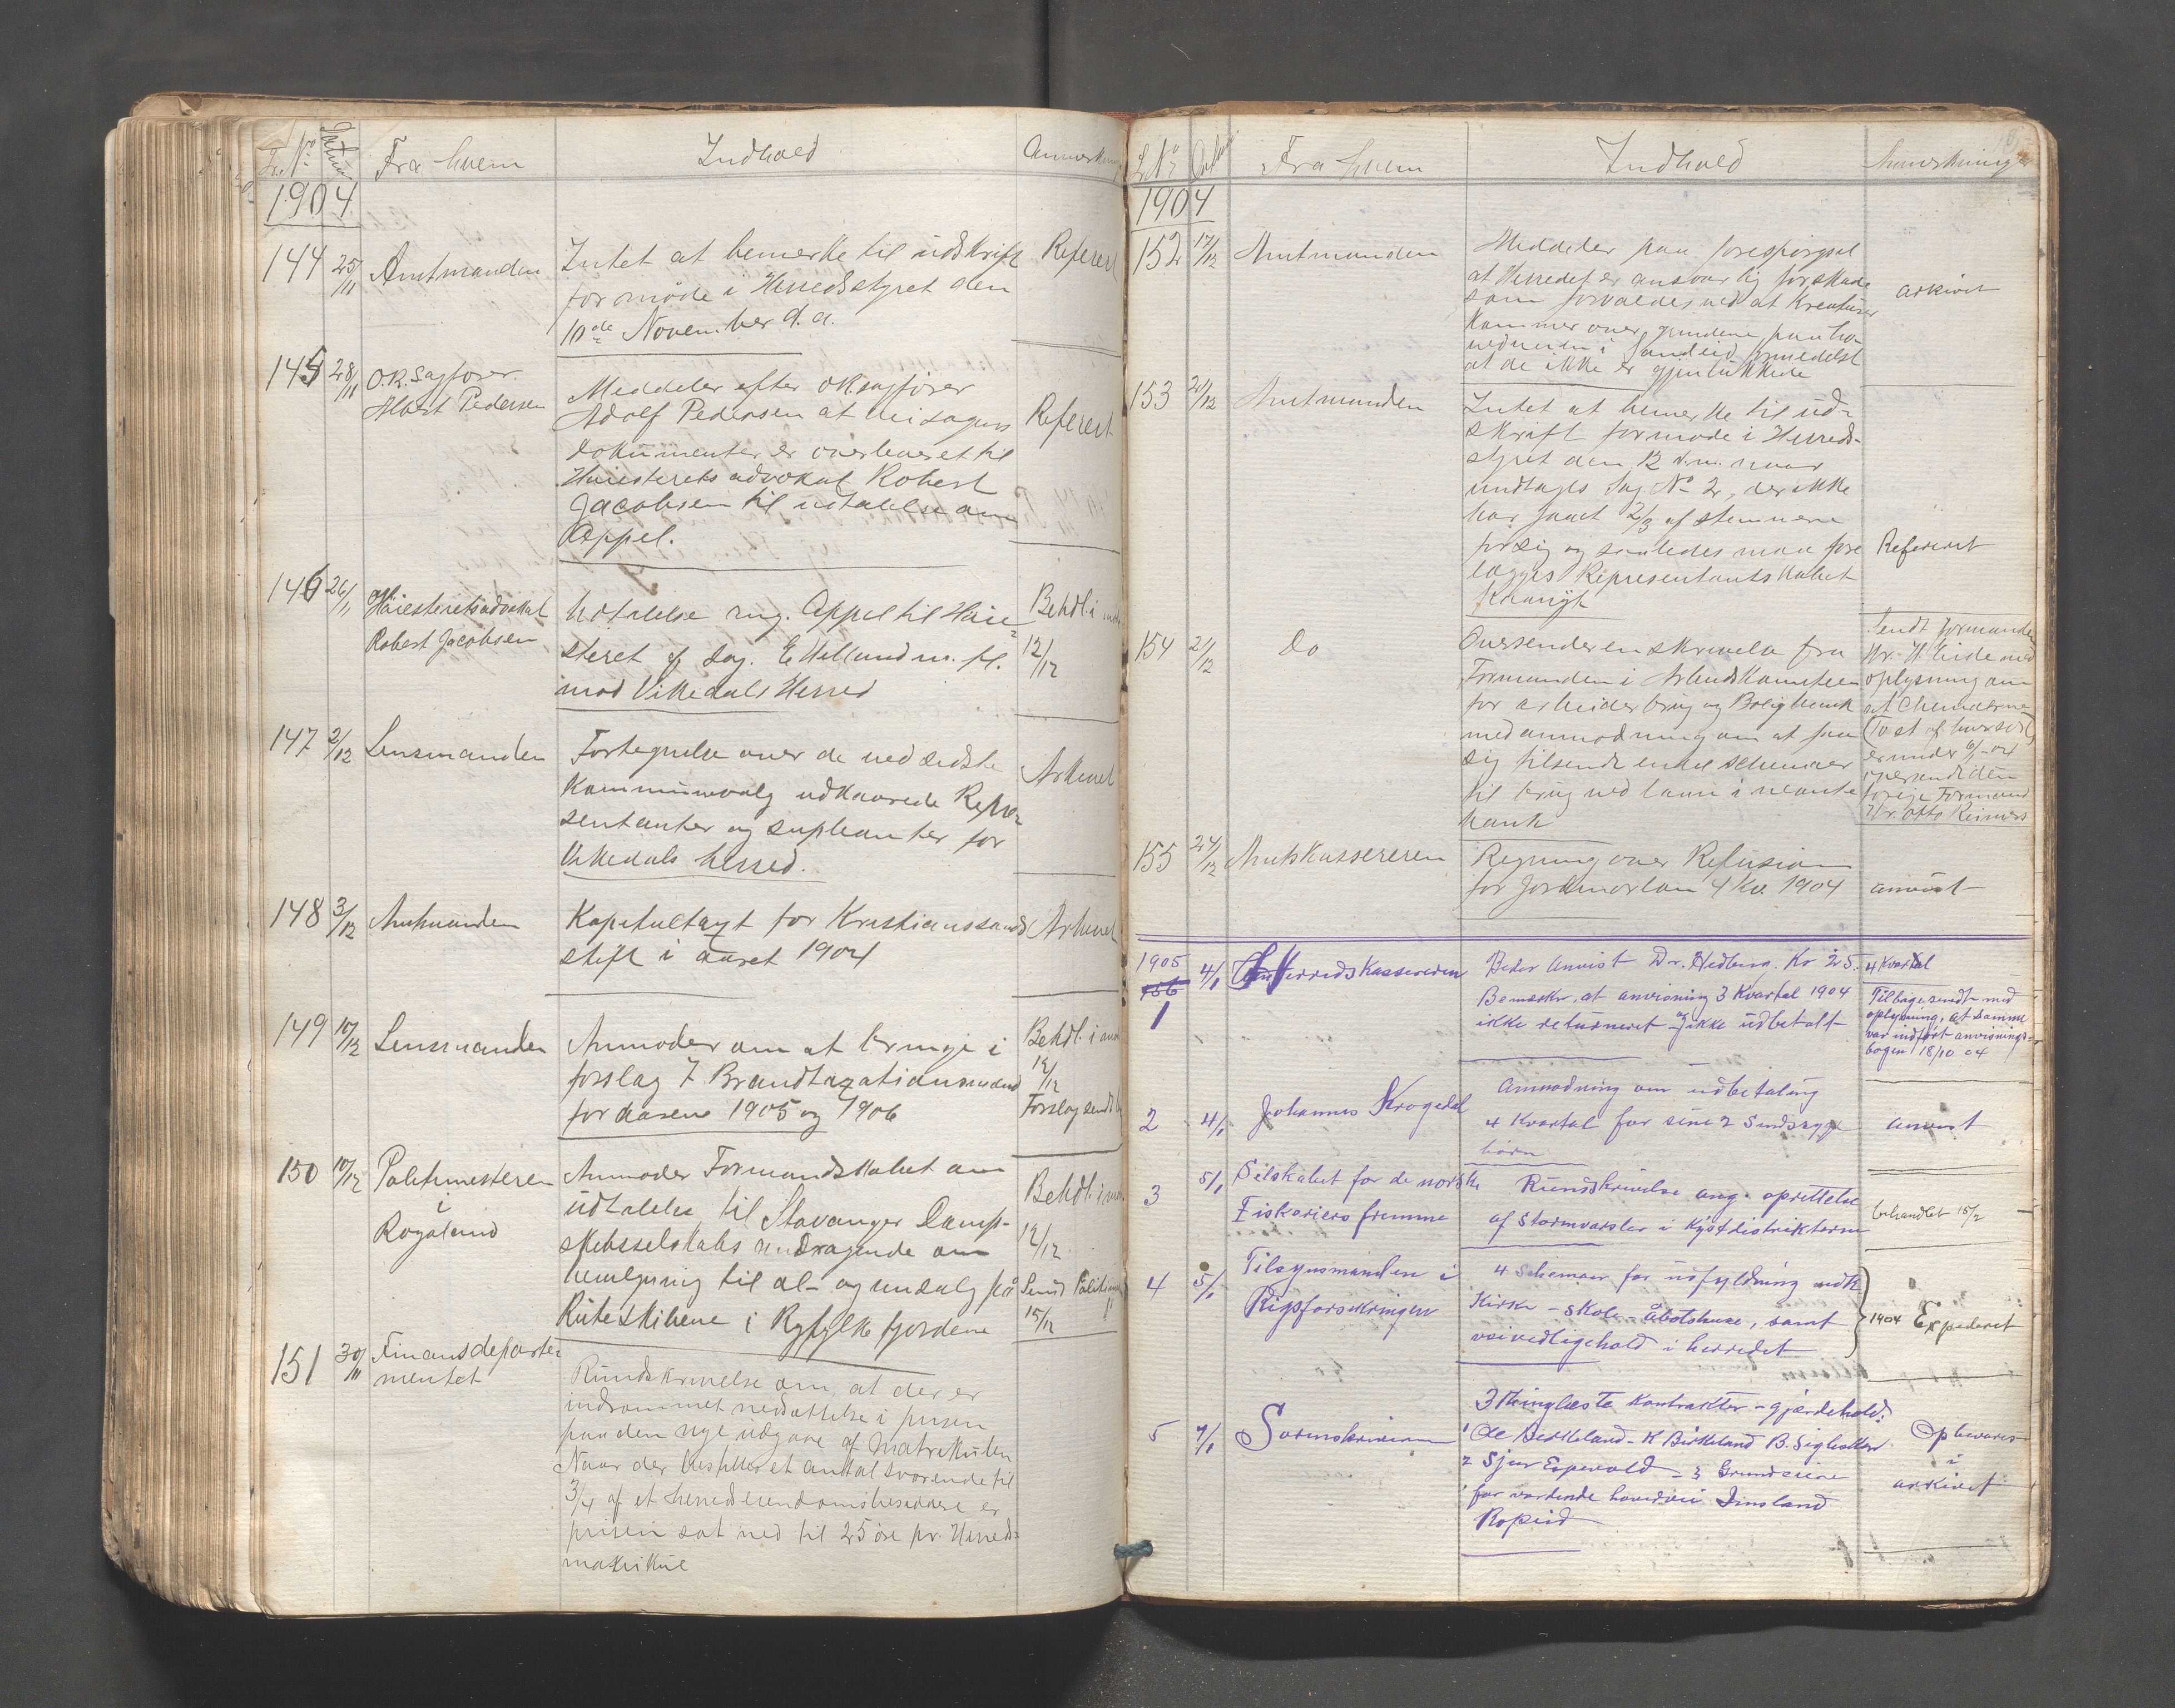 Nº Datum Fra hvem Indhold Anmærkning
1904
144 25/11 Amtmanden Intet at bemerke til udskrift Referert
for møde i Herredsstyret den
10de November d.a.
145 28/11 O.R. Sagfører Meddeler efter OR sagfører
Albert Pedersen Adolf Pedersen at veisagens Referert
dokumenter er overleveret til
Høiesteretsadvokat Robert
Jacobsen til udtalelse om
Appel.
146 26/11 Høiesteretsadvokat Udtalelse ang. Appel til Høie- Behdl. i
Robert Jacobsen steret af Sag. E Helland m. fl. 12/12
mod Vikedals Herred
147 2/12 Lensmanden Fortegnelse over de ved sidste
Kommunevalg udkaarede Repræ- Arkivet
sentanter og supleanter for
Vikedals herred.
148 3/12 Amtmanden Kapitultaxt for Kristianssands Arkivet
stift i aaret 1904
149 10/12 Lensmanden Anmoder om at bringe i Behdl. i
forslag 7 Brandtaxationsmænd 12/12
for aarene 1905 og 1906 Forslag sendt
150 10/12 Politimesteren Anmoder Formandskabet om
i udtalelse til Stavanger Damp- Behdl. i
Rogaland skibsselskabs andragende om 12/12
bevilgning til øl- og vinsalg på Sendt Politim
Ruteskibene i Ryfylkefjordene 15/12
151 30/11 Finansdeparte- Rundskrivelse om, at der er
mentet indrømmet nedsættelse i prisen
paa den nye udgave af Matrikulen
Naar der bestilles et antal svarende til
3/4 af et herreds eiendomsbesiddere er
prisen sat ned til 25 øre pr. Herreds-
matrikul
L. Nº Datum Fra hvem Indhold Anmerkninger
1904
152 17/12 Amtmanden Meddeler paa forespørgsel
at Herredet er ansvarlig for skade
som forvoldes ved at Kreaturer arkivet
kommer over grindene paa ho-
vedveien i Sandeid formedelst
at de ikke er gjenlukkede
153 21/12 Amtmanden Intet at bemerke til ud-
skrift for møde i Herreds-
styret den 12 d.m. naar
undtages Sag Nº 2, der ikke
har faaet 2/3 af stemmerne
for sig og saaledes maa fore Referert
lægges Representantskabet
Paanyt
154 21/12 Do Oversender en skrivelse fra Sendt formanden
Formanden i Arbeidskomiteen Hr. H. Eide med
for arbeiderbrug og Boligbank oplysning om
med anmodning om at faa at Chemaerne
sig tilsendt endel schemaer (10 st af hver sort)
til brug ved laan i nævnte er under 6/-04
bank oversendt den
forrige Formand
Hr. Otto Reimers
155 24/12 Amtskassereren Regning over Refusion
for Jordmorløn 4 Kv 1904 anvist
1905
156
1 4/1 Herredskassereren Beder Anvist Dr. Hedberg. Kr 25. 4 Kvartal
Bemerker, at anvisning 3 Kvartal 1904 Tilbagesendt med
ikke returneret og ikke udbetalt oplysning, at samme
var indført anvisnings-
bogen 18/10 04
2 4/1 Johannes Krogedal Anmodning om udbetaling
4 Kvartal for sine 2 Sindssyge anvist
børn
3 5/1 Selskabet for de norske Rundskrivelse ang. oprettelse behandlet 15/2
Fiskeriers fremme af Stormvarsler i Kystdistrikterne
4 5/1 Tilsynsmanden i 4 Schemaer for udfyldning vedk
Rigsforsikringen Kirke - skole - åbotshuse, samt 1904 Expederet
veivedligehold i herredet
5 7/1 Sorenskriveren 3 thinglæste Kontrakter - gjærdehold:
1 Ole Birkeland - K Birkeland B. Opbevares
2 Sjur Espevold - 3 Grundeiere i
for vordende hovedvei Imsland arkivet
Ropeid